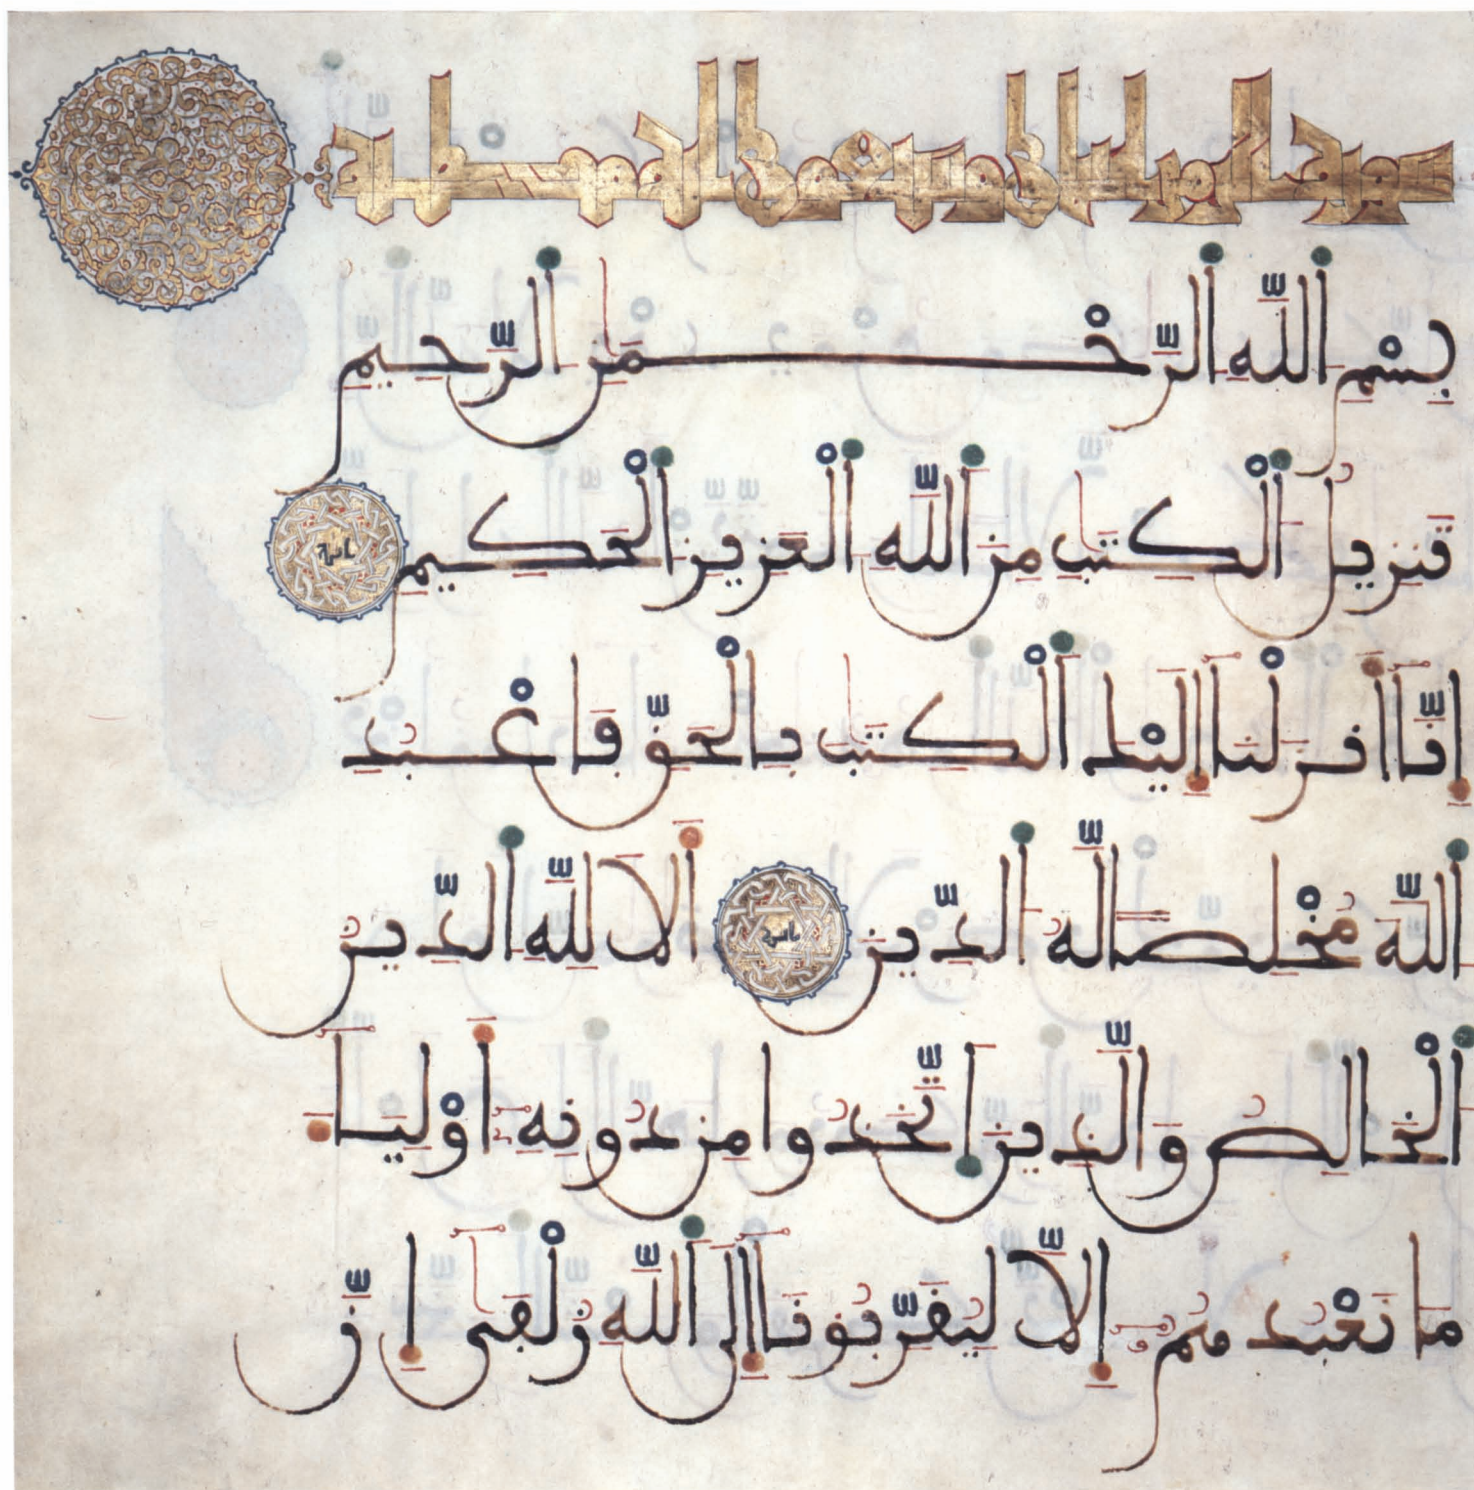 سورة الزمر وسبعون
بِسْمِ اللَّهِ الرَّحْمَٰنِ الرَّحِيمِ
تَنزِيلُ الْكِتَٰبِ مِنَ اللَّهِ الْعَزِيزِ الْحَكِيمِ
إِنَّا أَنزَلْنَا إِلَيْكَ الْكِتَٰبَ بِالْحَقِّ فَاعْبُدِ
اللَّهَ مُخْلِصًا لَهُ الدِّينَ أَلَا لِلَّهِ الدِّينُ
الْخَالِصُ وَالَّذِينَ اتَّخَذُوا مِن دُونِهِ أَوْلِيَاءَ
مَا نَعْبُدُهُمْ إِلَّا لِيُقَرِّبُونَا إِلَى اللَّهِ زُلْفَىٰ إِنَّ